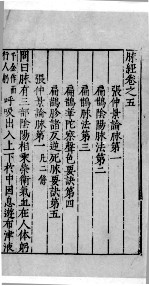 脉經卷之五
張仲景論脉第一
扁鵲陰陽脉法第二
扁鵲脉法第三
扁鵲華陀察聲色要訣第四
扁鵲診諸反逆死脉要訣第五
張仲景論脉第一
問曰脉有三部陰陽相乘榮衛氣血在人體躬
千金作而行人躬
呼吸出入上下於中因息遊布津液